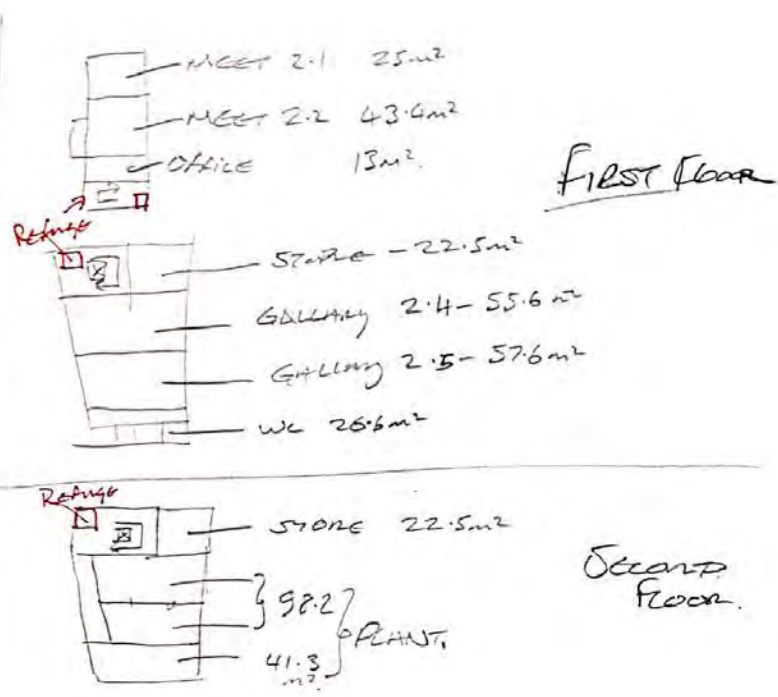 MEET 2.1 25m²
MEET 2.2 43.4m²
OFFICE 13m².
FIRST FLOOR
Refuge
STORE - 22.5m²
GALLARY 2.4 - 55.6m²
GALLARY 2.5 - 57.6m²
WC 26.6m²
Refuge
STORE 22.5m²
SECOND
FLOOR.
98.2
PLANT.
41.3
m².